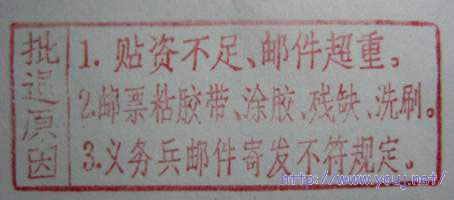 批退原因
1. 贴资不足、邮件超重。
2.邮票粘胶带、涂胶、残缺、洗刷。
3.义务兵邮件寄发不符规定。
http://www.youj.net/